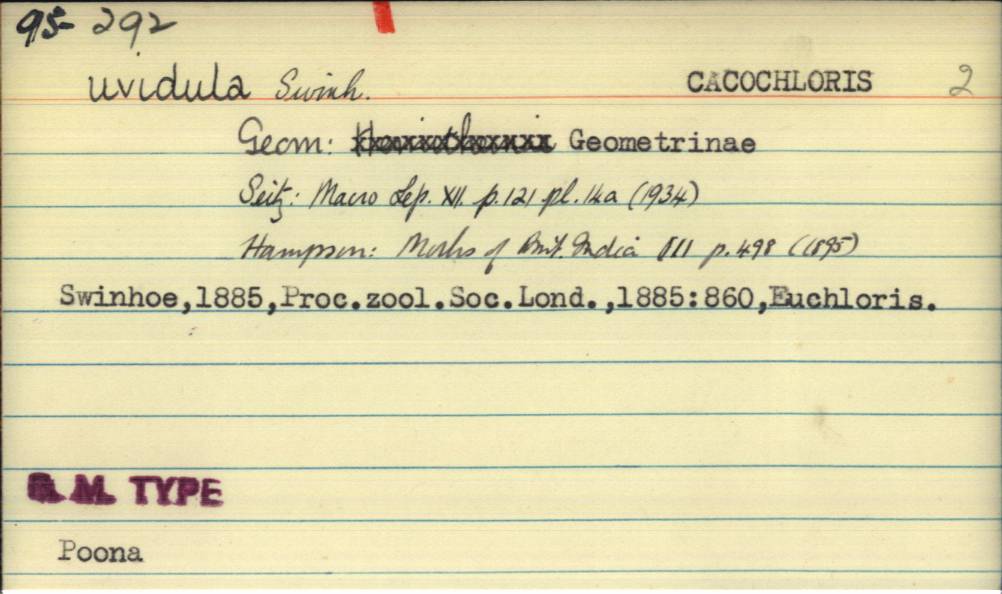 95- 292
uvidula Swinh. CACOCHLORIS 2
Geom: Geometrinae
Seitz: Macro Lep. XII. p.121 pl.14a (1934)
Hampson: Moths of Brit. India III p.498 (1895)
Swinhoe,1885,Proc.zool.Soc.Lond.,1885:860,Euchloris.
B.M. TYPE
Poona